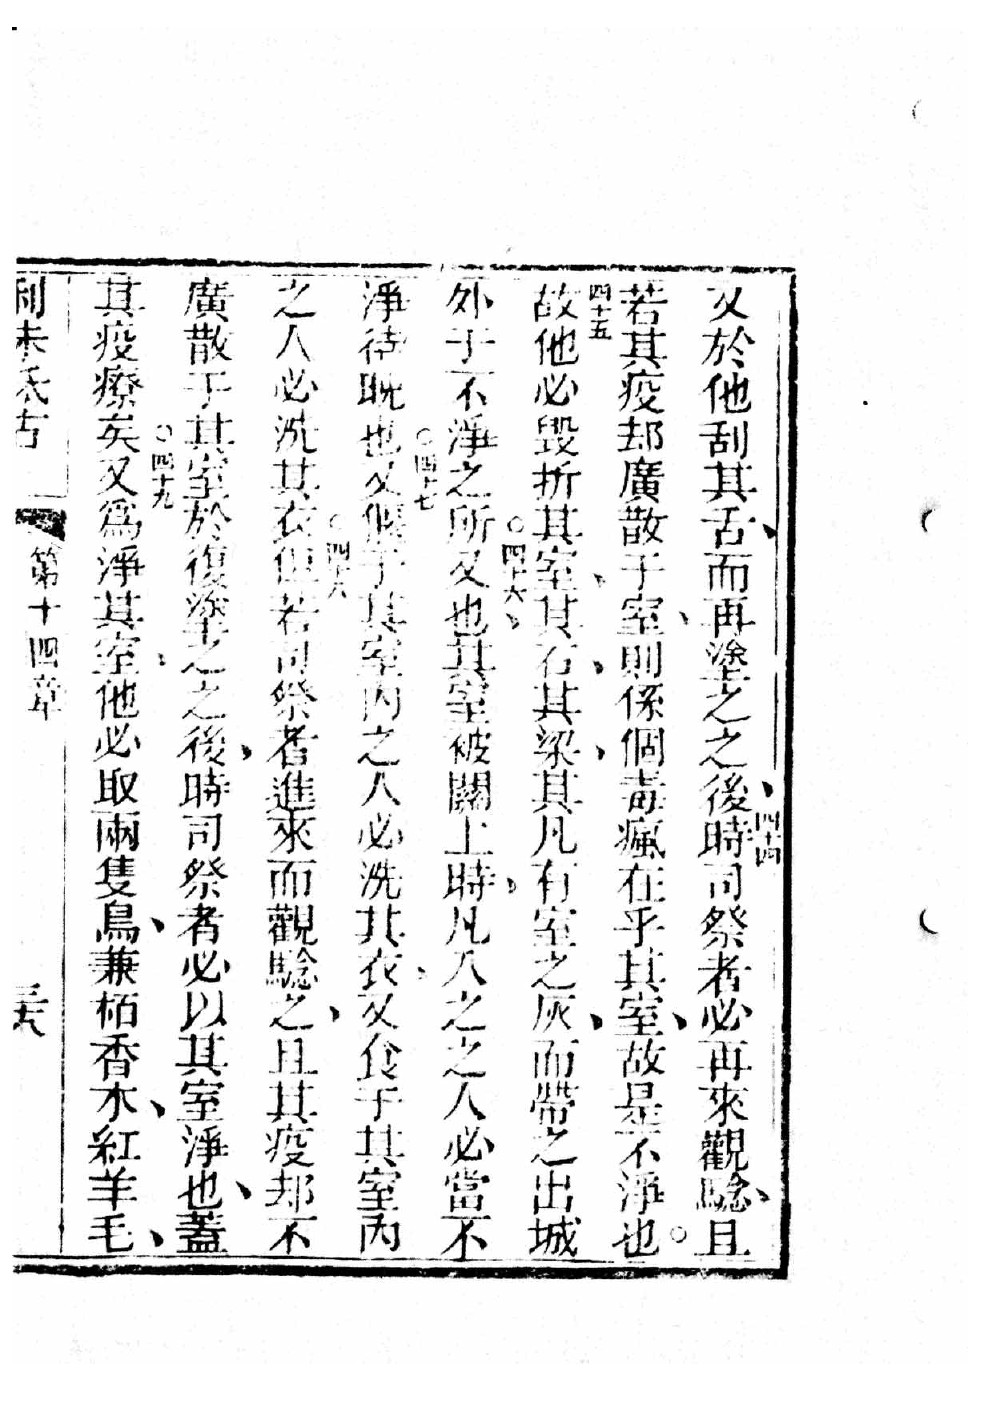 又於他刮其舌、而再塗之之後、四十四時司祭者必再來觀驗、且
若其疫却廣散于室、則係個毒瘋在乎其室、故是不淨也。
四十五故他必毀折其室、其石、其梁、其凡有室之灰、而帶之出城
外于不淨之所又也。四十六、其室被關上時、凡入之之人必當不
淨待晚也。四十七又偃于其室內之人必洗其衣、又食于其室內
之人必洗其衣。四十八但若司祭者進來而觀驗之、且其疫却不
廣散于其室於復塗之之後、時司祭者必以其室淨也、蓋
其疫療矣。四十九又爲淨其室、他必取兩隻鳥、兼栢香木、紅羊毛、
利未氏古 第十四章 三六